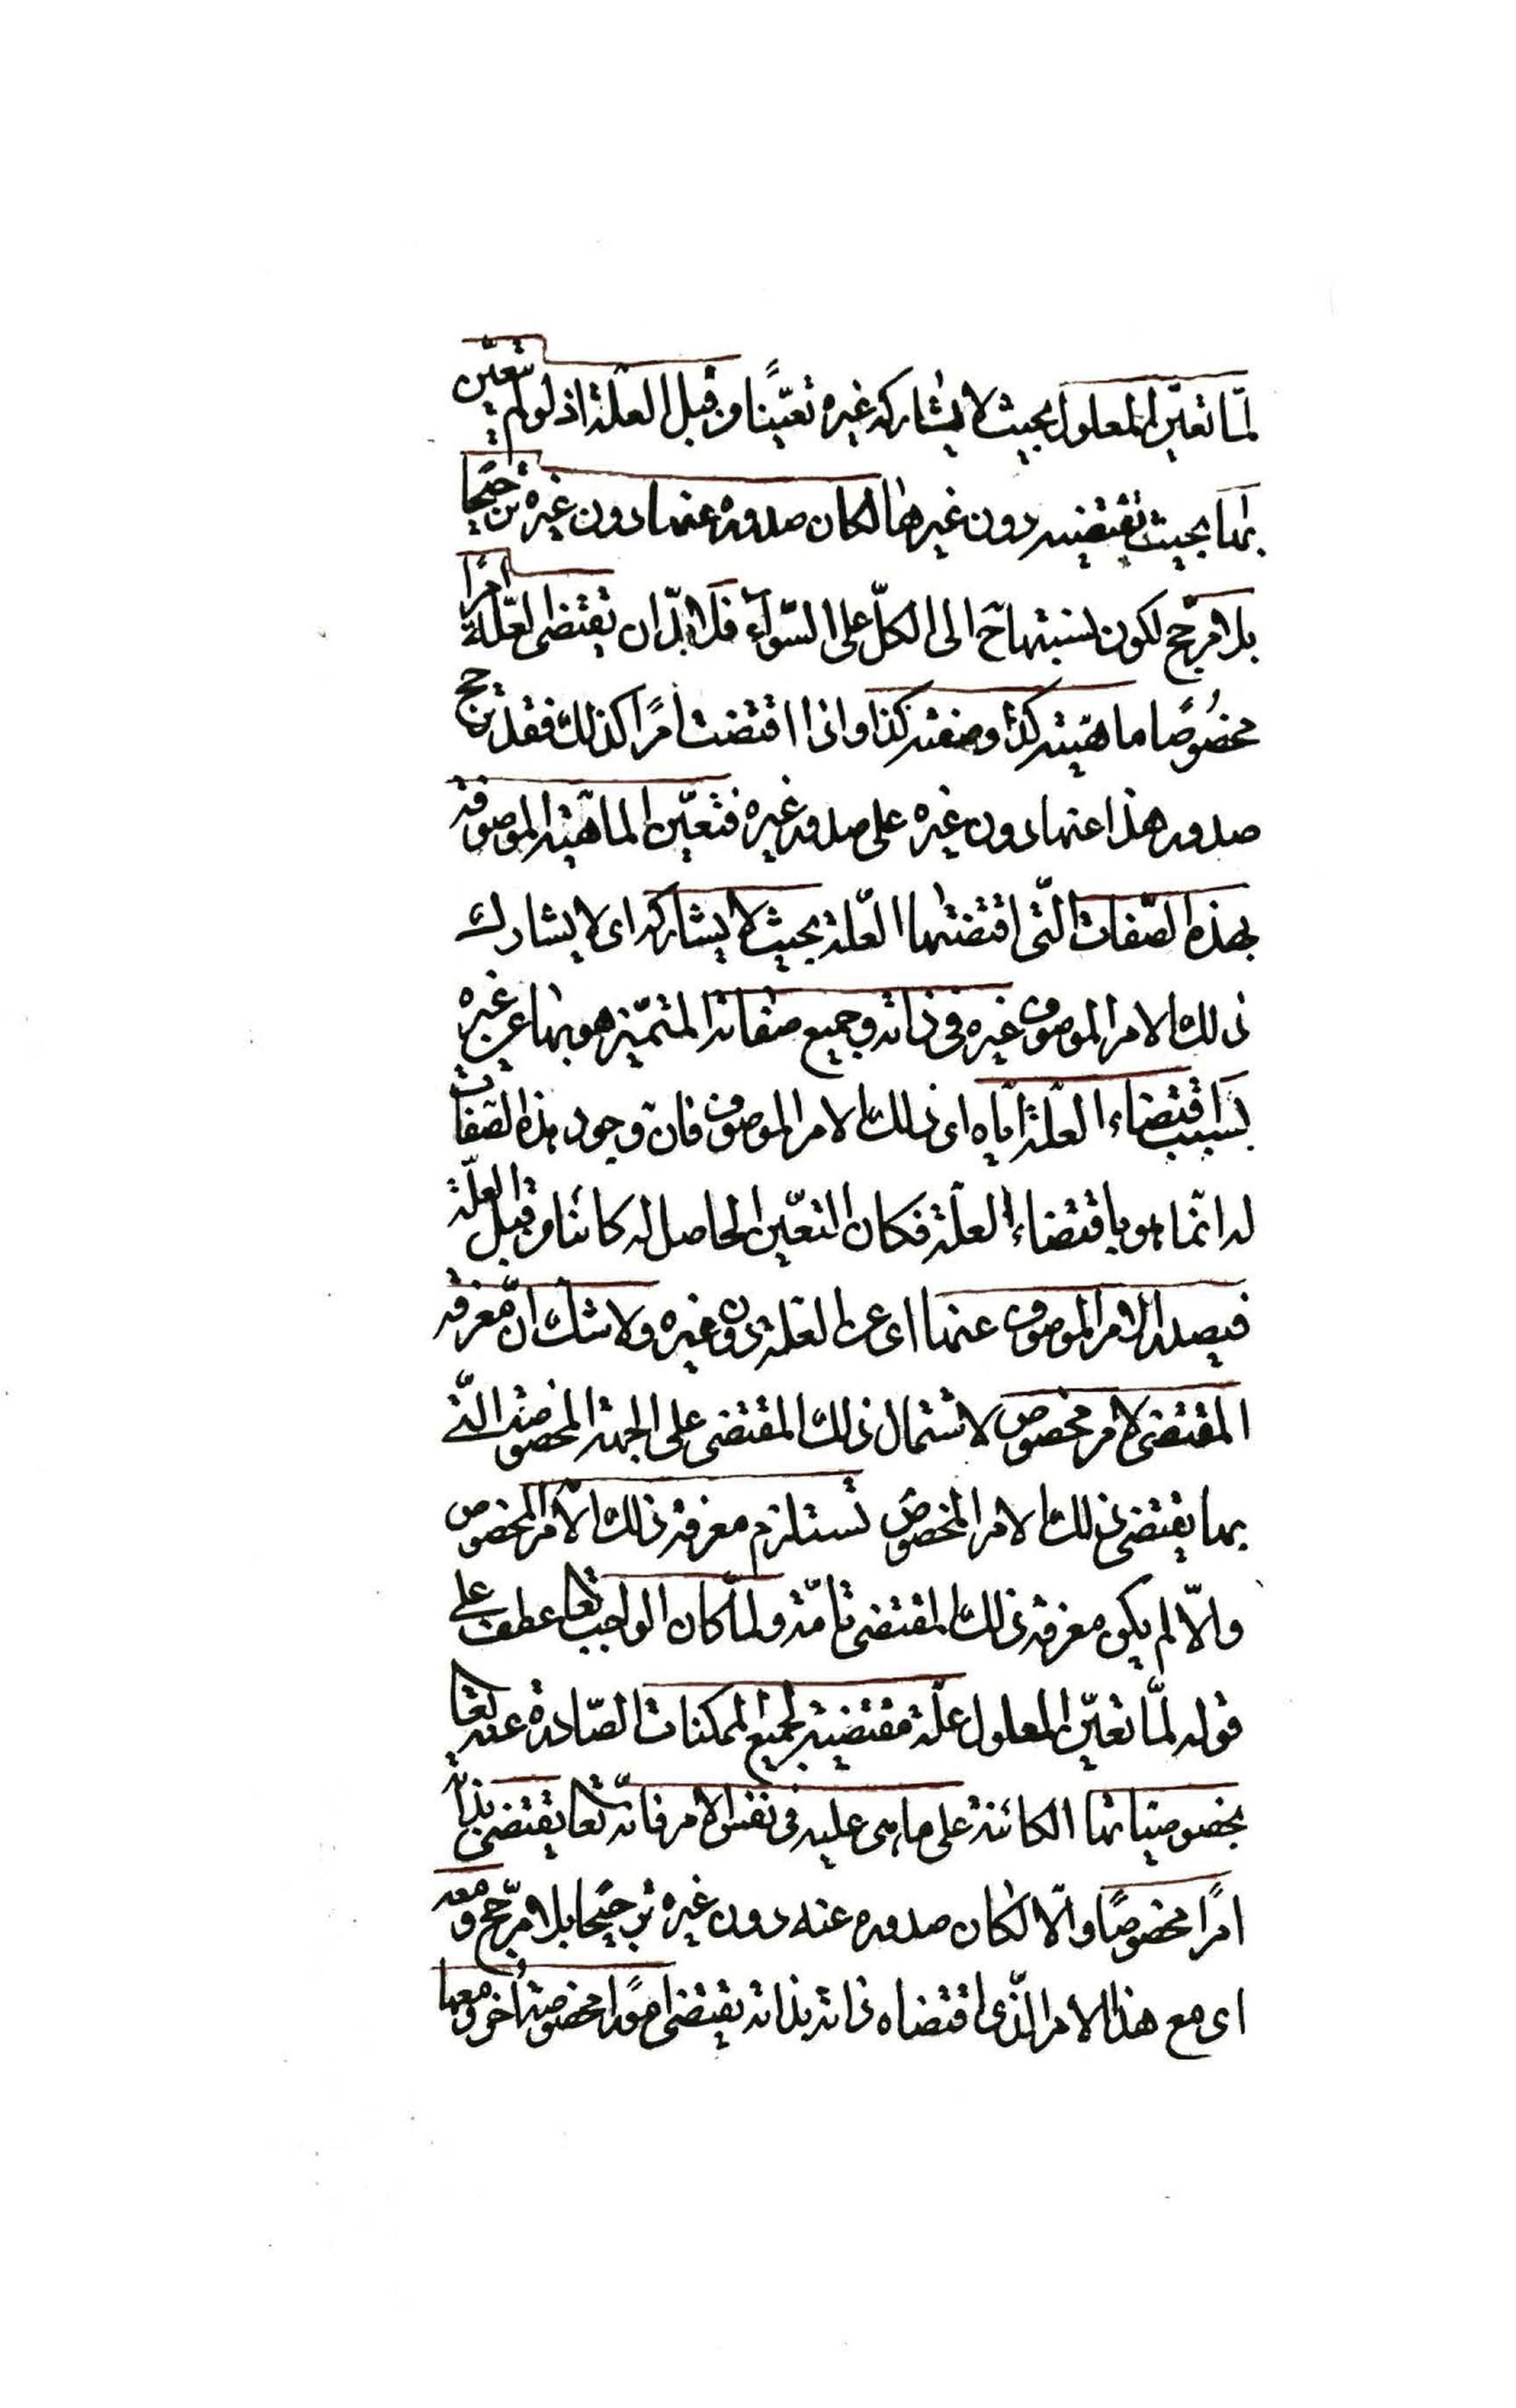 لمّا تعيّن المعلول بحيث لا يشاركه غيره تعيّنًا من قبل العلّة اذ لو لم يتعيّن
بها بحيث تقتضيه دون غيرها لكان صدوره عنها دون غيره ترجيحًا
بلا مرجّح لكون نسبتها ح الى الكلّ على السّواء فلا بدّ ان تقتضى العلّة امرًا
مخصُوصًا ماهيّته كذا وصفته كذا واذا اقتضت امرًا كذلك فقد ترجح
صدور هذا عنها دون غيره على صدور غيره فتعيّن الماهيّة الموصوفة
بهذه الصّفات الّتى اقتضتها العّلة بحيث لا يشاركه اى لا يشارك
ذلك الامر الموصوف غيره فى ذاته وجميع صفاته المتميّز هو بها عن غيره
بسبب اقتضاء العلّة ايّاه اى ذلك الامر الموصوف فانّ وجود هذه الصّفات
له انّما هو باقتضاء العلّة فكان التعيّن الحاصل له كائنا من قبل العلّة
فيصدر الامر الموصوف عنها اى عن العلّة دون غيره ولا شك انّ معرفة
المقتضى لامر مخصوص لاشتمال ذلك المقتضى على الجهة المخصوصة الّتى
بها يقتضى ذلك الامر المخصوص تستلزم معرفة ذلك الامر المخصوص
والّا لم يكن معرفة ذلك المقتضى تامّة ولمّا كان الواجب تعا عطف على
قوله لمّا تعيّن المعلول علّة مقتضية لجميع الممكنات الصّادرة عنه تعا
بخصوصيّاتها الكائنة على ما هى عليه فى نفس الامر فانّه تعا يقتضى بذاته
امرًا مخصُوصًا والّا لكان صدوره عنه دون غيره ترجيحًا بلا مرجّح ومعه
اى مع هذا الامر الّذى اقتضاه ذاته بذاته يقتضى امورًا مخصوصة اُخر ومعها